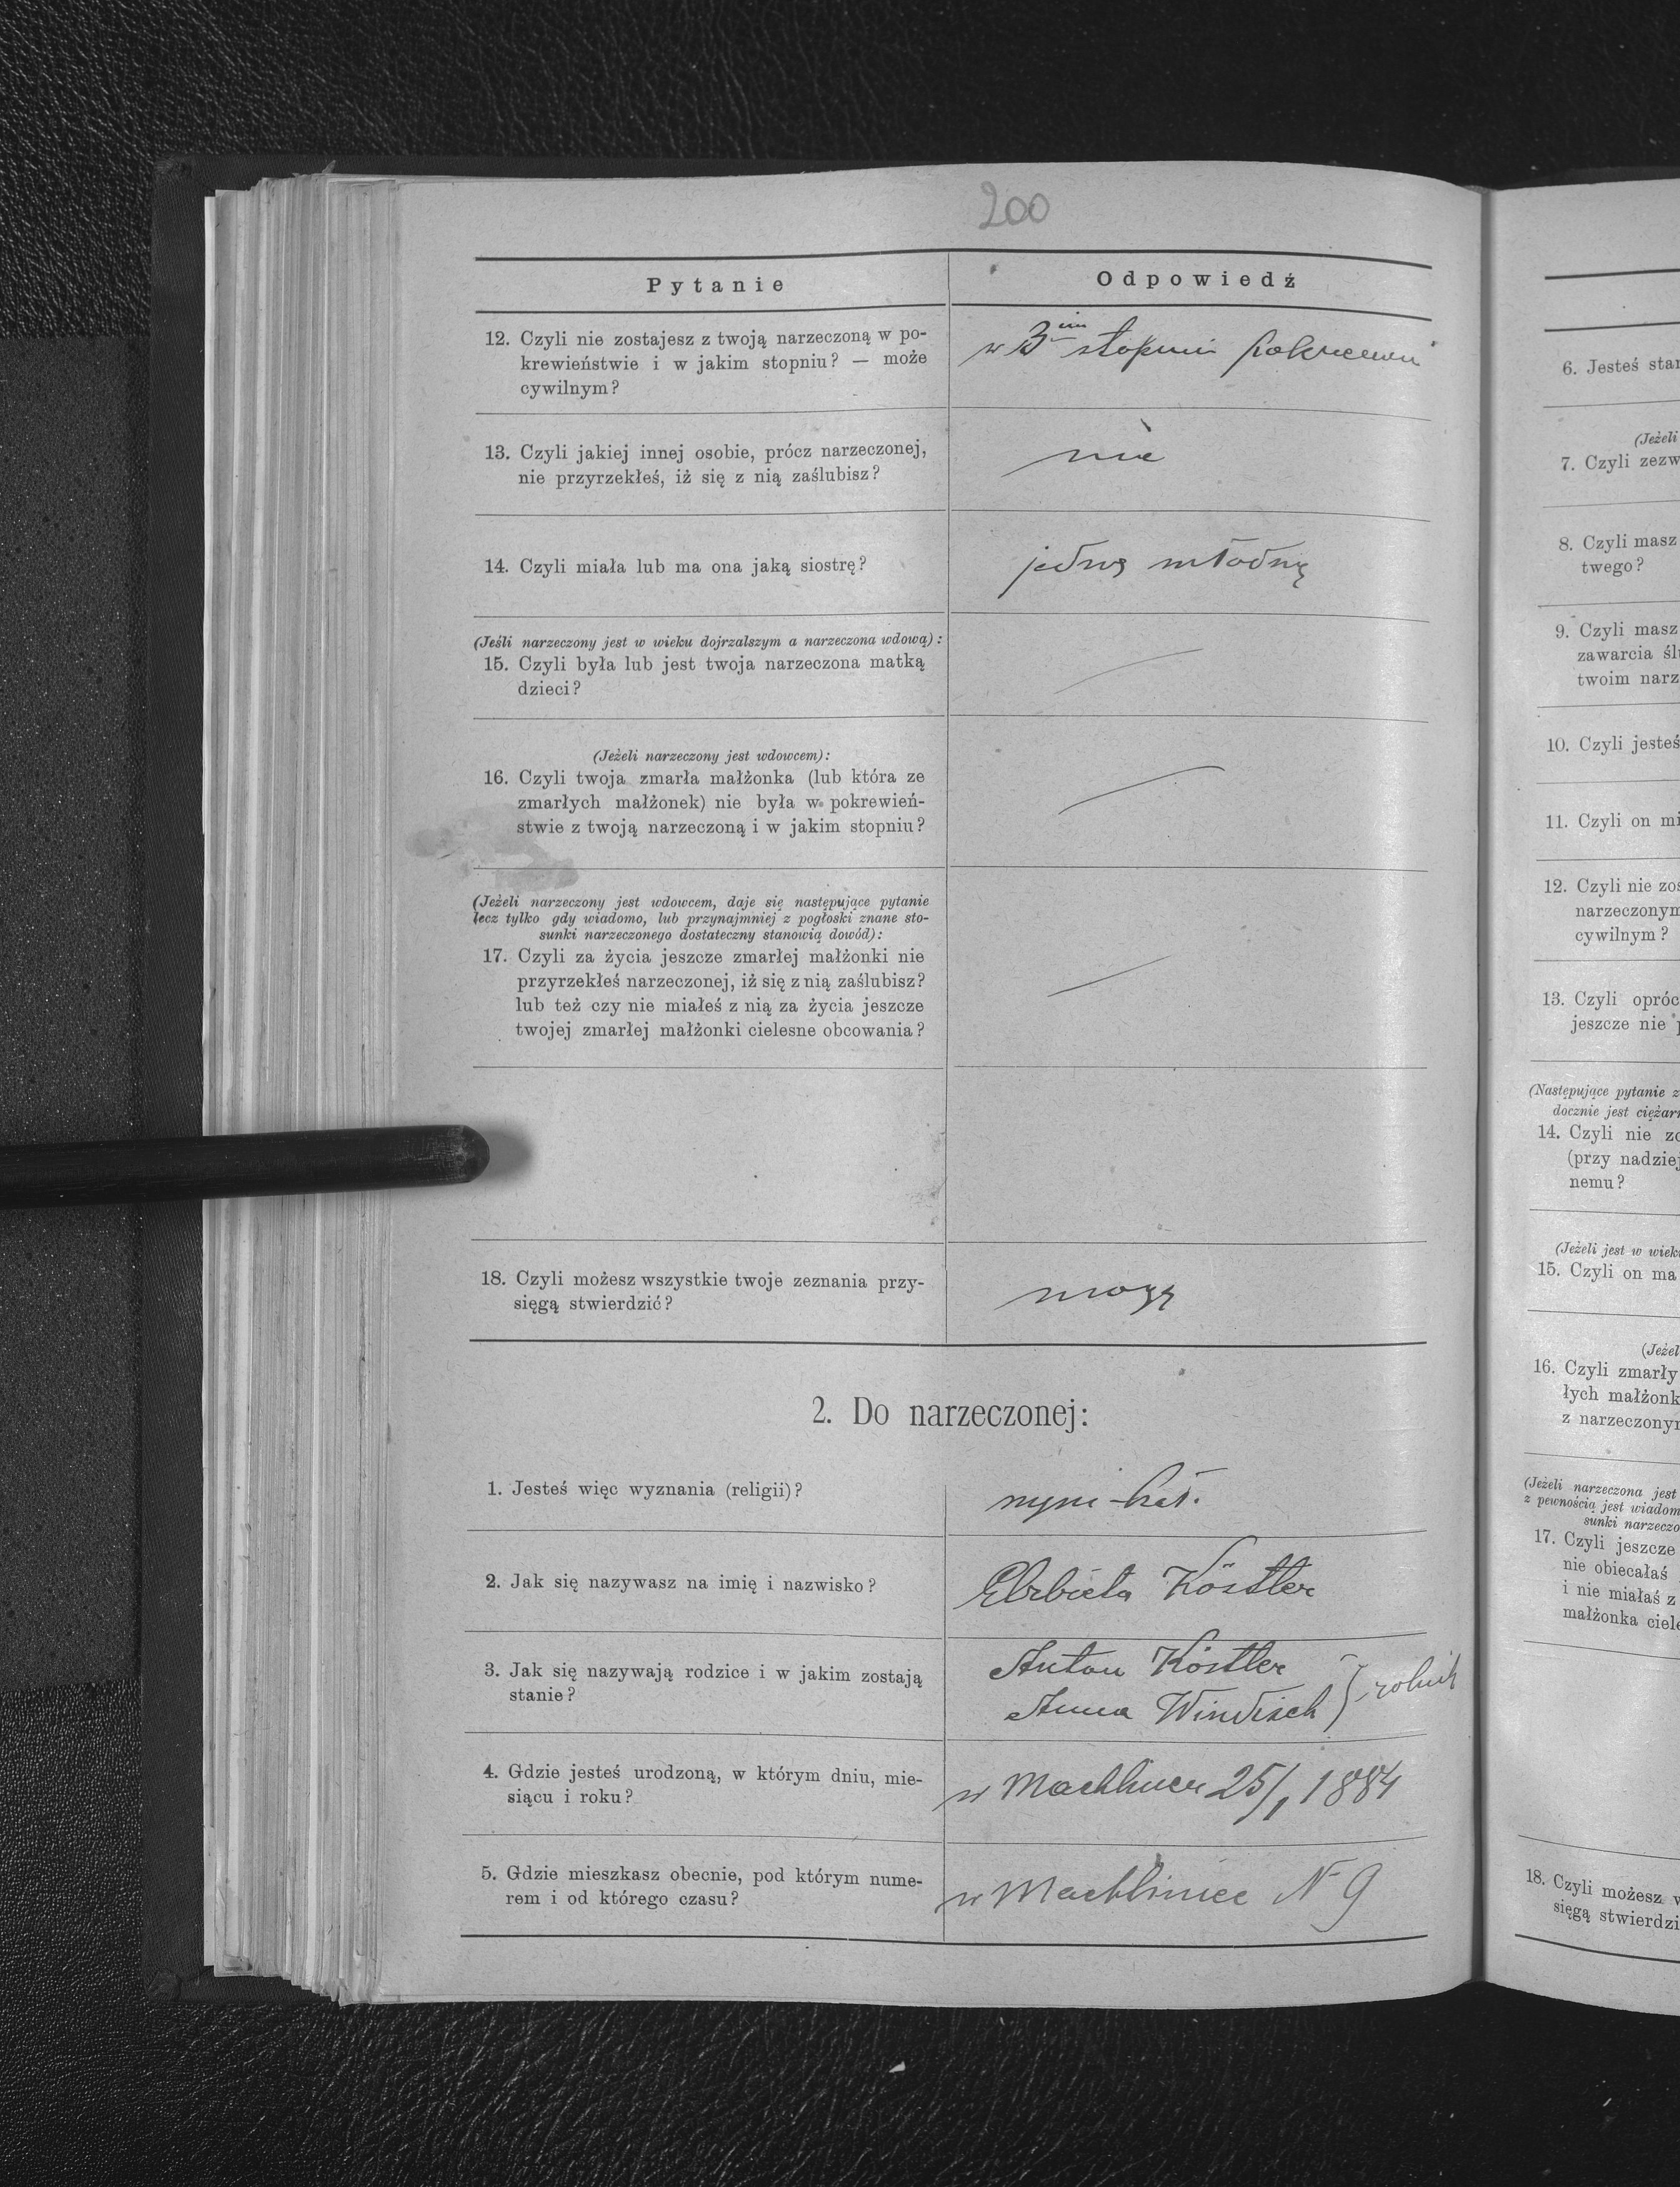 200
Pytanie
Odpowiedź
12. Czyli nie zostajesz z twoją narzeczoną w po-
krewieństwie i w jakim stopniu? — może
cywilnym?
w 3im stopniu
13. Czyli jakiej innej osobie, prócz narzeczonej,
nie przyrzekłeś, iż się z nią zaślubisz?
nie
14. Czyli miała lub ma ona jaką siostrę?
jedną młodną
(Jeśli narzeczony jest w wieku dojrzalszym a narzeczona wdową):
15. Czyli była lub jest twoja narzeczona matką
dzieci?
(Jeżeli narzeczony jest wdowcem):
16. Czyli twoja zmarła małżonka (lub która ze
zmarłych małżonek) nie była w pokrewień-
stwie z twoją narzeczoną i w jakim stopniu?
(Jeżeli narzeczony jest wdowcem, daje się następujące pytanie
lecz tylko gdy wiadomo, lub przynajmniej z pogłoski znane sto-
sunki narzeczonego dostateczny stanowią dowód):
17. Czyli za życia jeszcze zmarłej małżonki nie
przyrzekłeś narzeczonej, iż się z nią zaślubisz?
lub też czy nie miałeś z nią za życia jeszcze
twojej zmarłej małżonki cielesne obcowania?
18. Czyli możesz wszystkie twoje zeznania przy-
sięgą stwierdzić?
mogę
2. Do narzeczonej:
1. Jesteś więc wyznania (religii)?
rym-kat.
2. Jak się nazywasz na imię i nazwisko?
Elżbieta Köstler
3. Jak się nazywają rodzice i w jakim zostają
stanie?
Anton Köstler
Anna Windisch } rolnik
4. Gdzie jesteś urodzoną, w którym dniu, mie-
siącu i roku?
w Machlincu 25/1 1884
5. Gdzie mieszkasz obecnie, pod którym nume-
rem i od którego czasu?
w Machliniec N 9
6. Jesteś star
(Jeżeli
7. Czyli zezw
8. Czyli masz
twego?
9. Czyli masz
zawarcia śl
twoim narz
10. Czyli jesteś
11. Czyli on mi
12. Czyli nie zos
narzeczonym
cywilnym?
13. Czyli opróc
jeszcze nie
(Następujące pytanie z
docznie jest ciężar
14. Czyli nie zo
(przy nadziej
nemu?
(Jeżeli jest w wieku
15. Czyli on ma
(Jeżel
16. Czyli zmarły
łych małżonk
z narzeczony
(Jeżeli narzeczona jest
z pewnością jest wiadom
sunki narzeczo
17. Czyli jeszcze
nie obiecałaś
i nie miałaś z
małżonka ciele
18. Czyli możesz w
sięgą stwierdzi